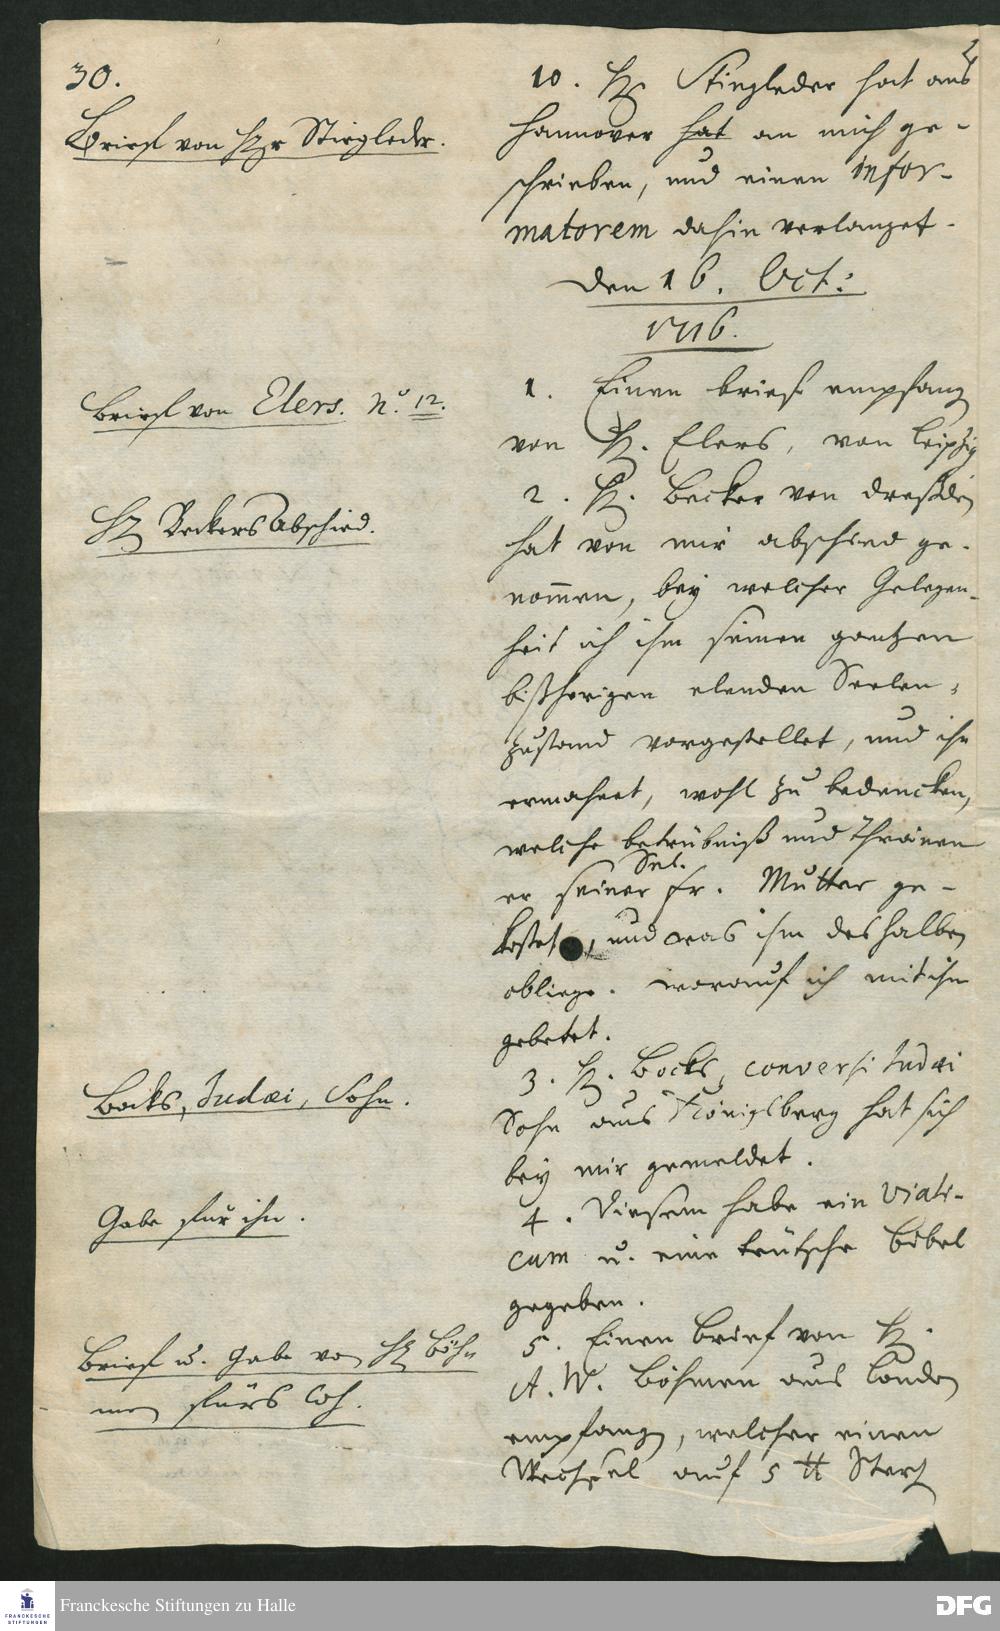 30.
Brieff von Hr Stiegleder.
Brieff von Elers. N.° 12.
Hr Beckers Abschied.
Bocks, Judæi, Sohn.
Gabe für ihn.
Brieff u. Gabe von Hr Böh
men fürs Coh.
10. Hr Stiegleder hat aus
Hannover hat an mich ge-
schrieben, und einen infor-
matorem dahin verlanget.
Den 16. Oct:
1716.
1. Einen brieff empfang
von Hr. Elers, von Leipzig
2. Hr. Becker von Dreßden
hat von mir abschied ge-
nommen, bey welcher Gelegen-
heit ich ihm seinen gantzen
bißherigen elenden Seelen-
zustand vorgestellet, und ihn
ermahnet, wohl zu bedencken,
welche betrübniß und Thränen
er seiner Sel. Fr. Mutter ge-
kostet, und was ihm deshalben
obliege. worauf ich mit ihm
gebetet.
3. Hr. Bocks, conversi Judæi
Sohn aus Königsberg hat sich
bey mir gemeldet.
4. Diesem habe ein Viati-
cum u. eine teütsche Bibel
gegeben.
5. Einen Brief von Hr.
A. W. Böhmen aus London
empfang, welcher einen
Wechsel auf 5 ℔ Sterl
Franckesche Stiftungen zu Halle
FRANCKESCHE
STIFTUNGEN
DFG